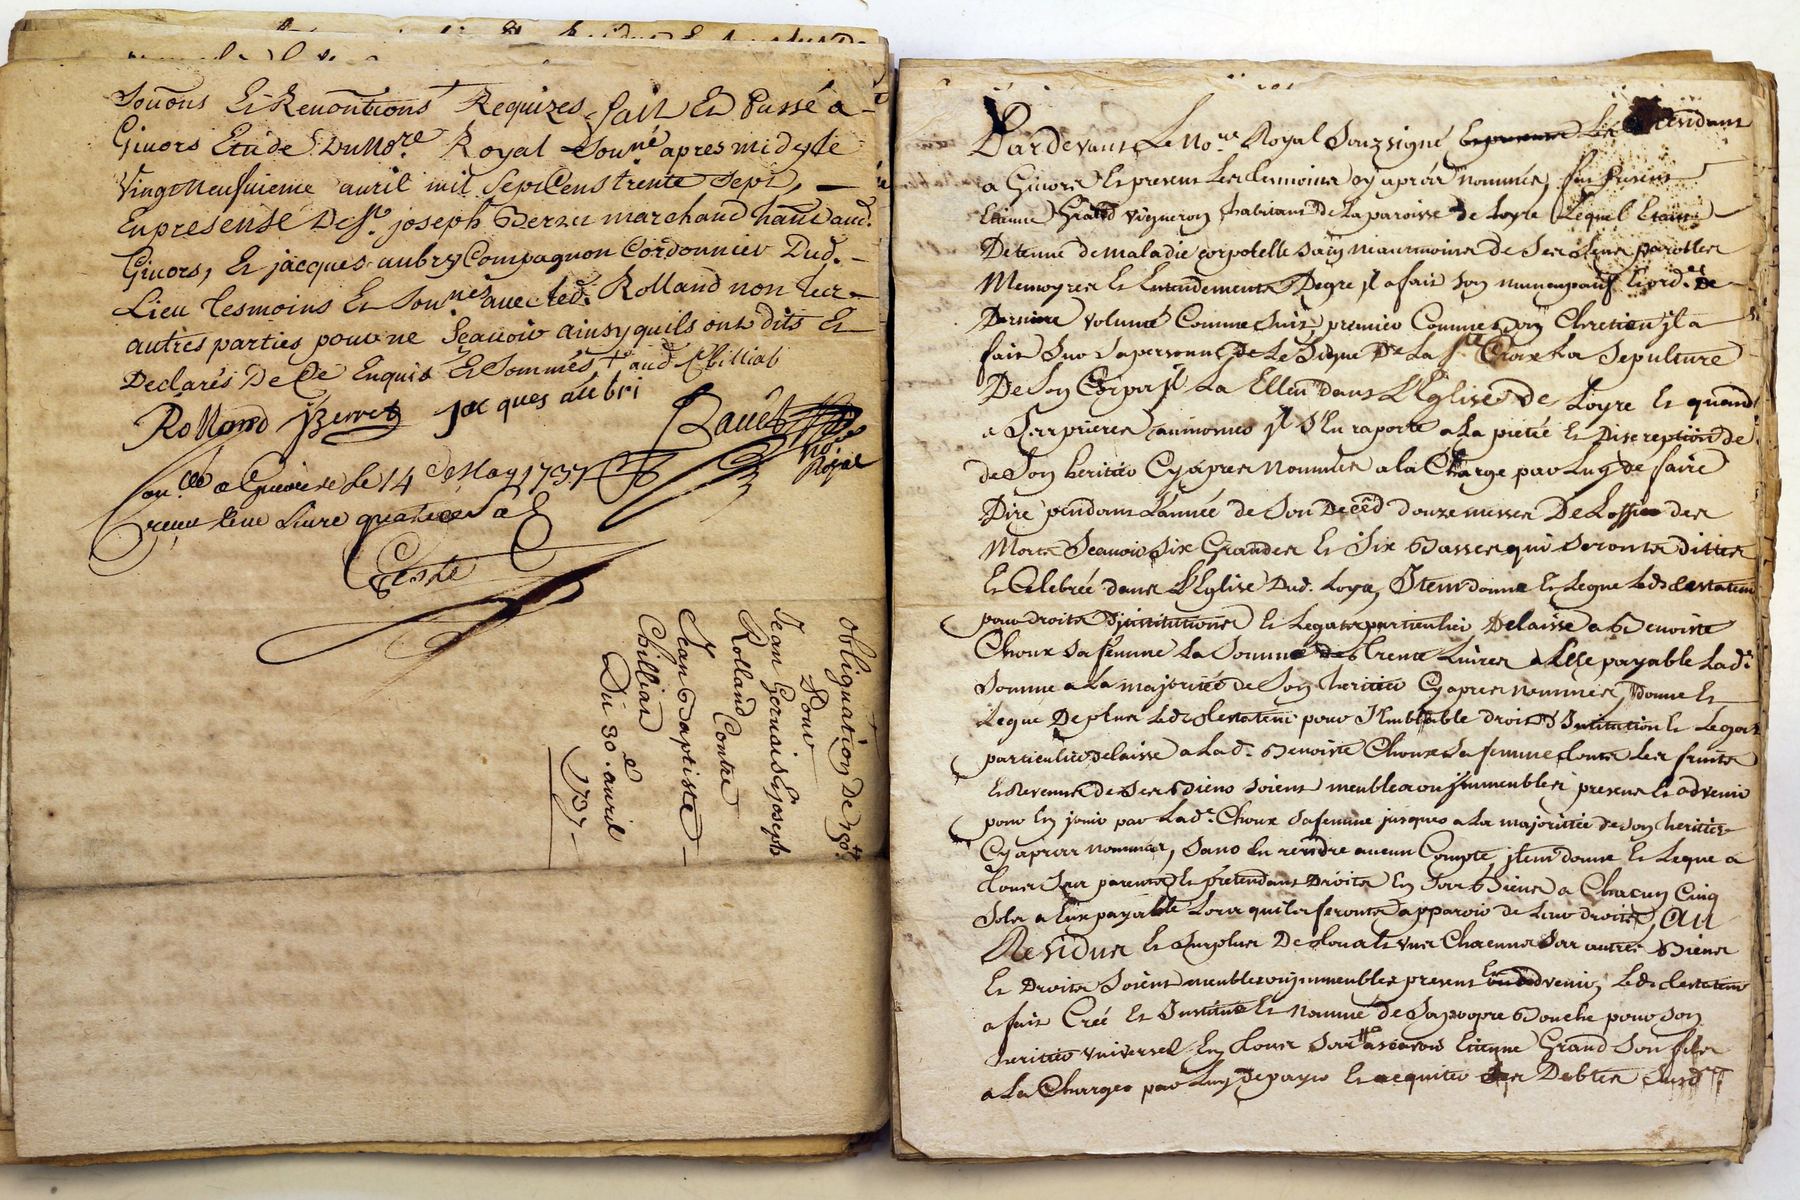 soûons Et Renontiôns Requizes, fait Et Passé a
Givors Etude Du No.re Royal Sou.né apres midy le
Vingt neufuieme auril mil Sept Cens trente Sept,
En presense De S.r joseph Berret marchand hant aud.
Givors, Et jacques aubry Compagnon Cordonnier Dud.
Lieu tesmoins Et Sou.nes avec led. Rolland non les
autres parties pour ne Sçauoir ainsy quils ont dits Et
Declarés De Ce Enquis Et Sommés aud Chilliat
Rolland Berret jacques aûbri Bauet
No.re Royal
le 14 De May 1737
Receu Livre quatorze Sols
Obliguation De
Pour
Jean Geruais Ejoseph
Rolland Contre
Jean Baptiste
Chilliat
Du 30.e auril
1737
Pardevant Le No.re Royal Souzsigné Residant
a Givors Et present Les tesmoins cy aprés nommés, fut present
Etienne Grand Vigneron habitant de La paroisse de Loyre Lequel Etant
Detenu de maladie corporelle sain neanmoins de Ses Sens parolles
Memoyres Et Entendements Degre jl a fait Son nuncupatif Et ord.re De
Derniere volunté Comme Suit, premier Comme bon Chretien jl a
fait Sur Sa personne De Le Signe De La S.te Croix La Sepulture
De Son Corps jl La Elleu dans L'Eglise de Loyre Et quand
a Ses prieres aumones jl S'En raporte a La pieté Et Discreption de
de Son heritier Cy apres Nommés a la Charge par Luy de faire
Dire pendant L'année de Son Decéd douze messes De Loffice des
Morts Scauoir Six Grandes Et Six Basses qui Seronts dittes
Et Celebrée dans L'Eglise Dud. Loyre, Jtem donne Et Legue Led. testateur
pour droits D'institutions Et Legats particulier Delaisse a Benoiste
Choux Sa femme La Somme de trente Liures a Elle payable Lad.
Somme a La majorité de Son heritier Cy apres nommés, donne Et
Legue De plus Led. testateur pour Semblable droits D'Institution Et Legats
particulier delaisse a Lad. Benoiste Choux Sa femme touts Les fruits
Et Revenus de Ses Biens Soient meubles ou jmmeubles presens Et advenir
pour En jouir par Lad. Choux Sa femme jusques a La majorittée de Son heritier
Cy apres nommés, Sans En rendre aucun Compte, jtem donne Et Legue a
tous Ses parents Et prétendants Droits En Ses Biens a Chacun Cinq
Sols a Eux payable Lors quils feronts apparoir de Leur droits, Au
Residus Et Surplus De touts uns Chacuns Ses autres Biens
Et Droits Soient meubles ou jmmeubles present Et advenir, Led. testateur
a fait Créé Et Institué Et Nommé de Sa propre Bouche pour Son
heritier vniversel En tous Scauoir Etienne Grand Son fils
a La Charges par Luy De payer Et acquiter Ses Debtes